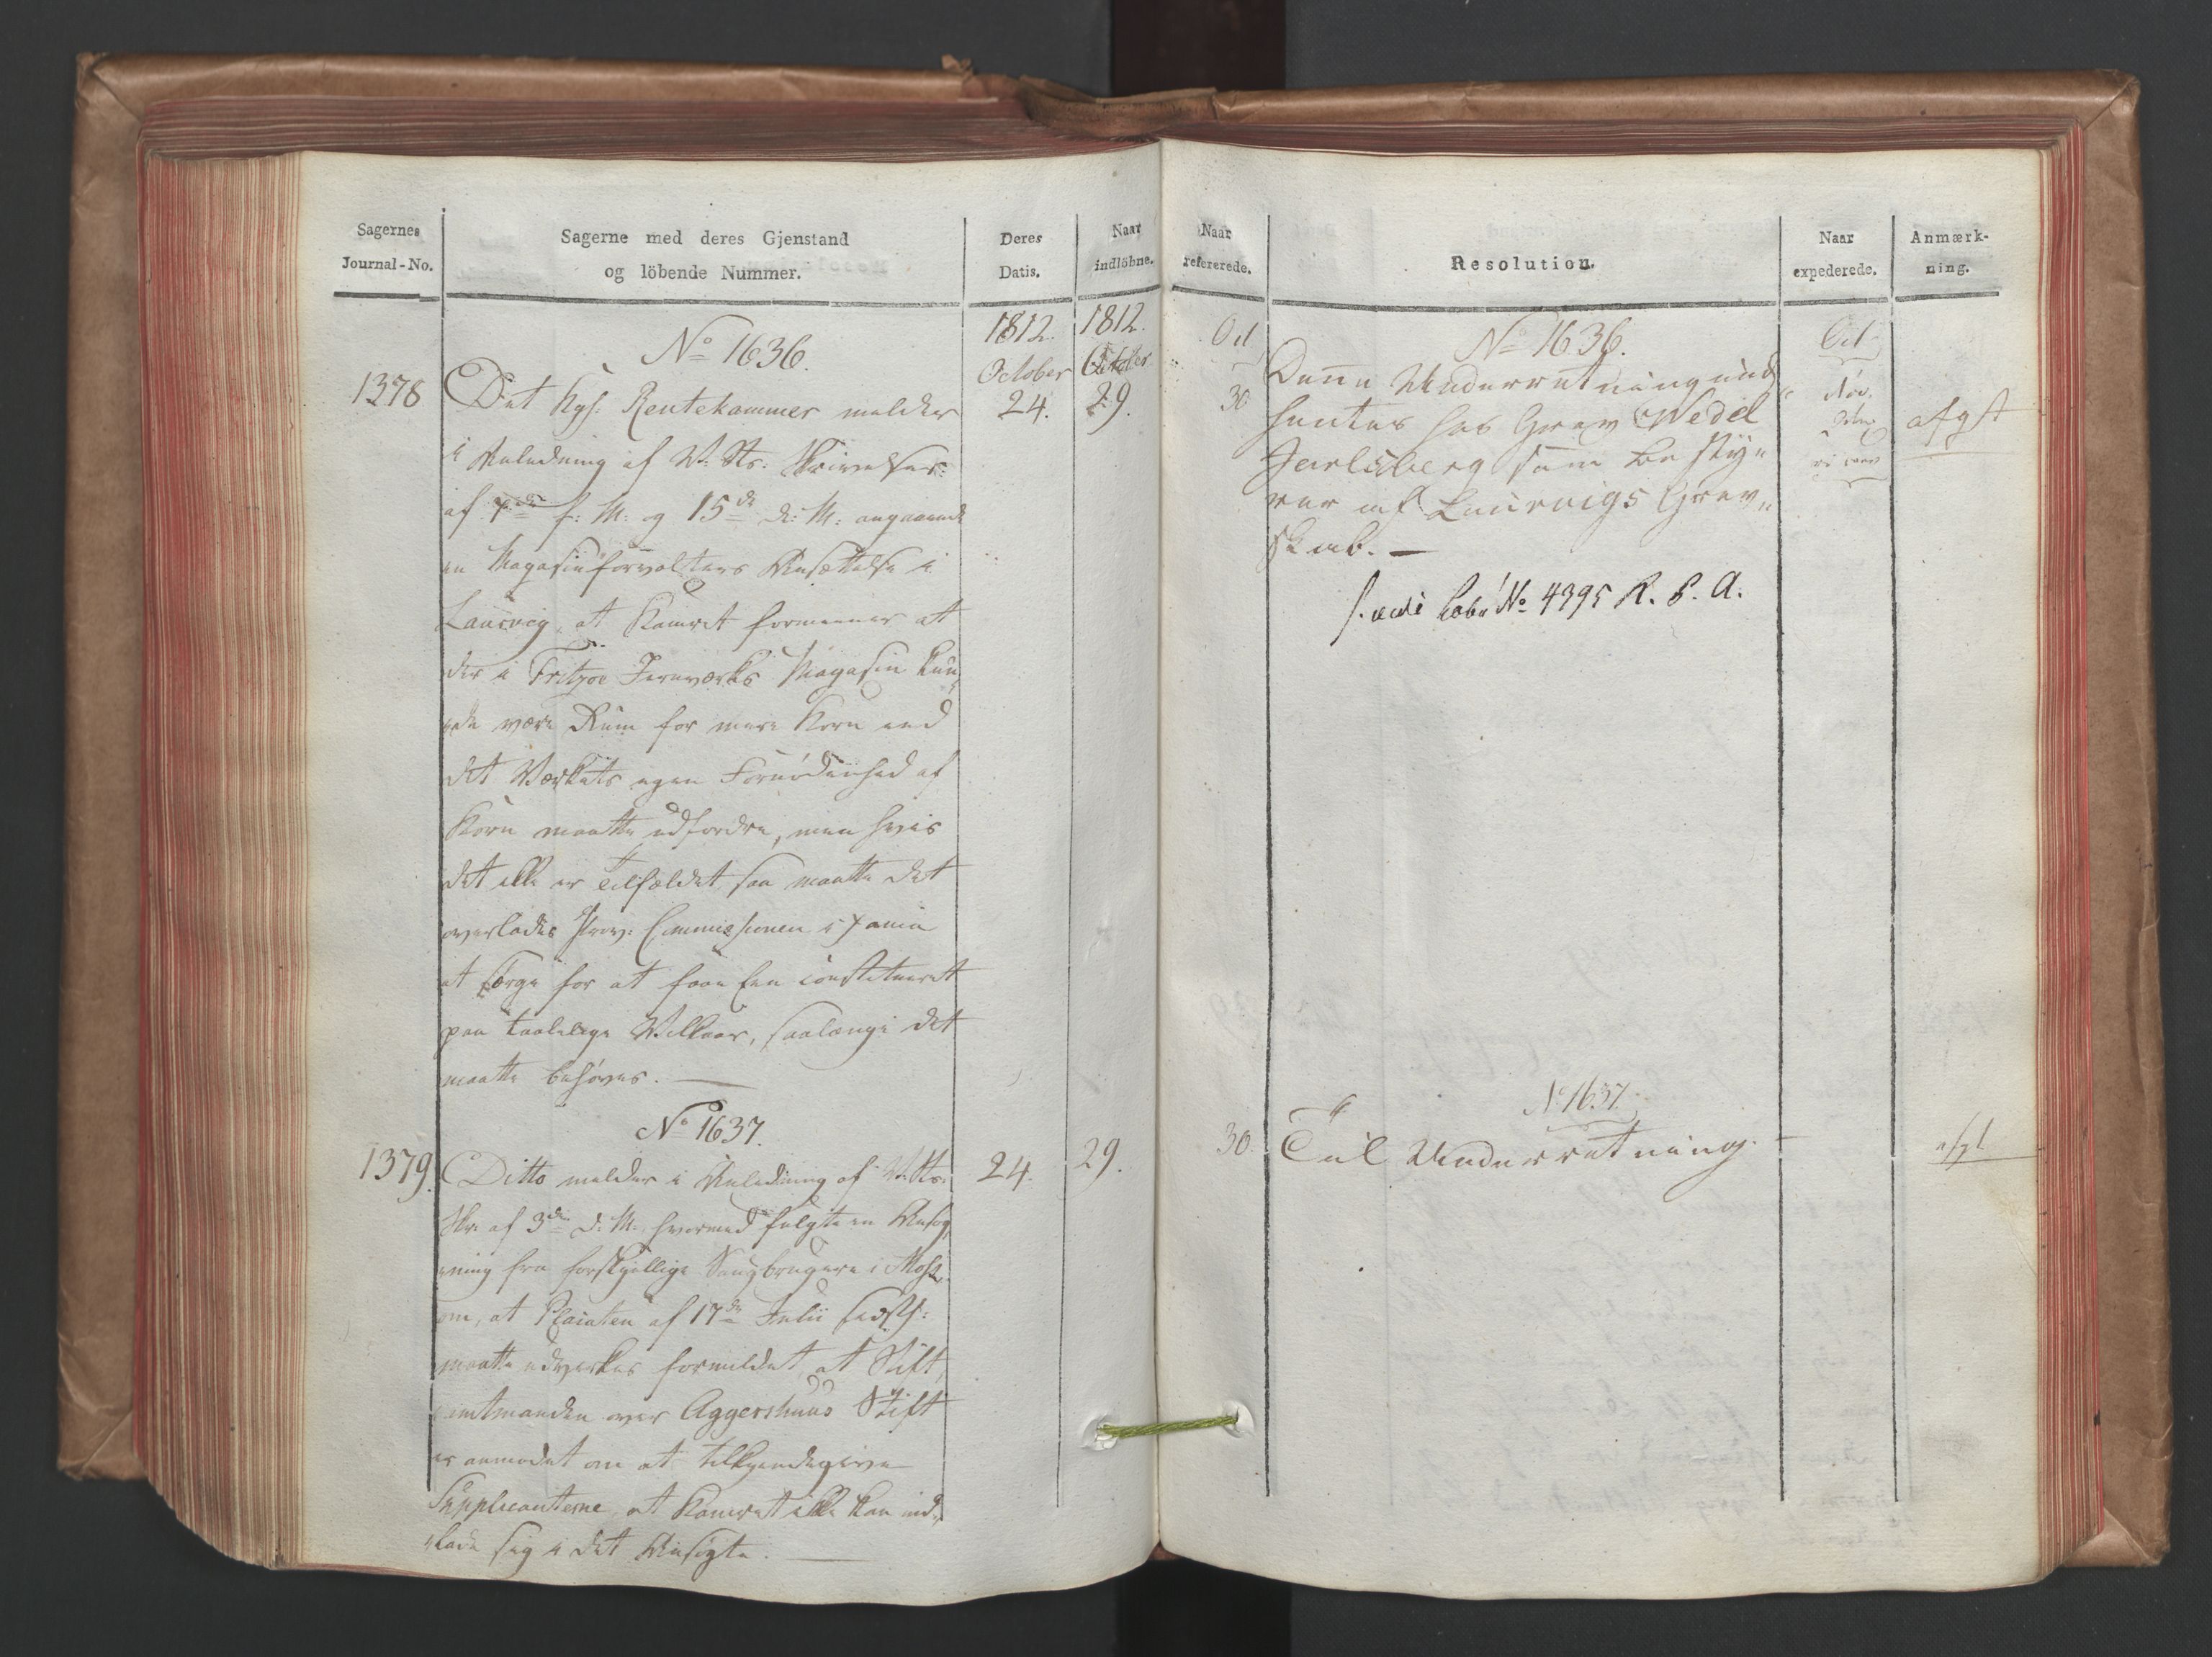 Sagernes
Journal-No.
Sagerne med deres Gjenstand
og löbende Nummer.
Deres
Datis.
Naar
indløbne.
1812. 1812.
October October
No 1636.
1378 Det Kgl: Rentekammer melder 24. 29.
i Anledning af V: Sts: Skrivelser
af 7de f: M: og 15de d: M: angaaende
en Magasinforvalters Ansættelse i
Laurvig, at Kamret formeener at
der i Fritzøe Jernværks Magasin kun
de være Rum for mere Korn end
det Værkets egen Fornødenhed af
Korn maatte udfordre, men hvis
det ikke er Tilfældet, saa maatte det
overlades Prov: Commissionen i Xania
at sørge for at faae een constitueret
paa taalelige Vilkaar, saalænge det
maatte behøves. —
No 1637.
1379. Ditto melder i Anledning af V: Sts: 24. 29.
Skr: af 3de d: M:, hvormed fulgte en Ansøg
ning fra forskjellige Saugbrugere i Moss
om, at Placaten af 17de Julii sidstl:
maatte udvirkes formildet, at Stift
amtmanden over Aggershuus Stift
er anmodet om at tilkjendegive
Supplicanterne, at Kamret ikke kan ind„
„lade sig i det Ansøgte. —
Naar
refererede.
Resolution.
Naar
expederede.
Anmærk-
ning.
Oct No 1636. Oct
30 Denne Underretning med
hentes hos Grev Wedel afgt
Jarlsberg som Besty„
rer af Laurvigs Grev„
skab. —
No 4395 R. P. A.
No 1637.
30. Til Underretning. afgt